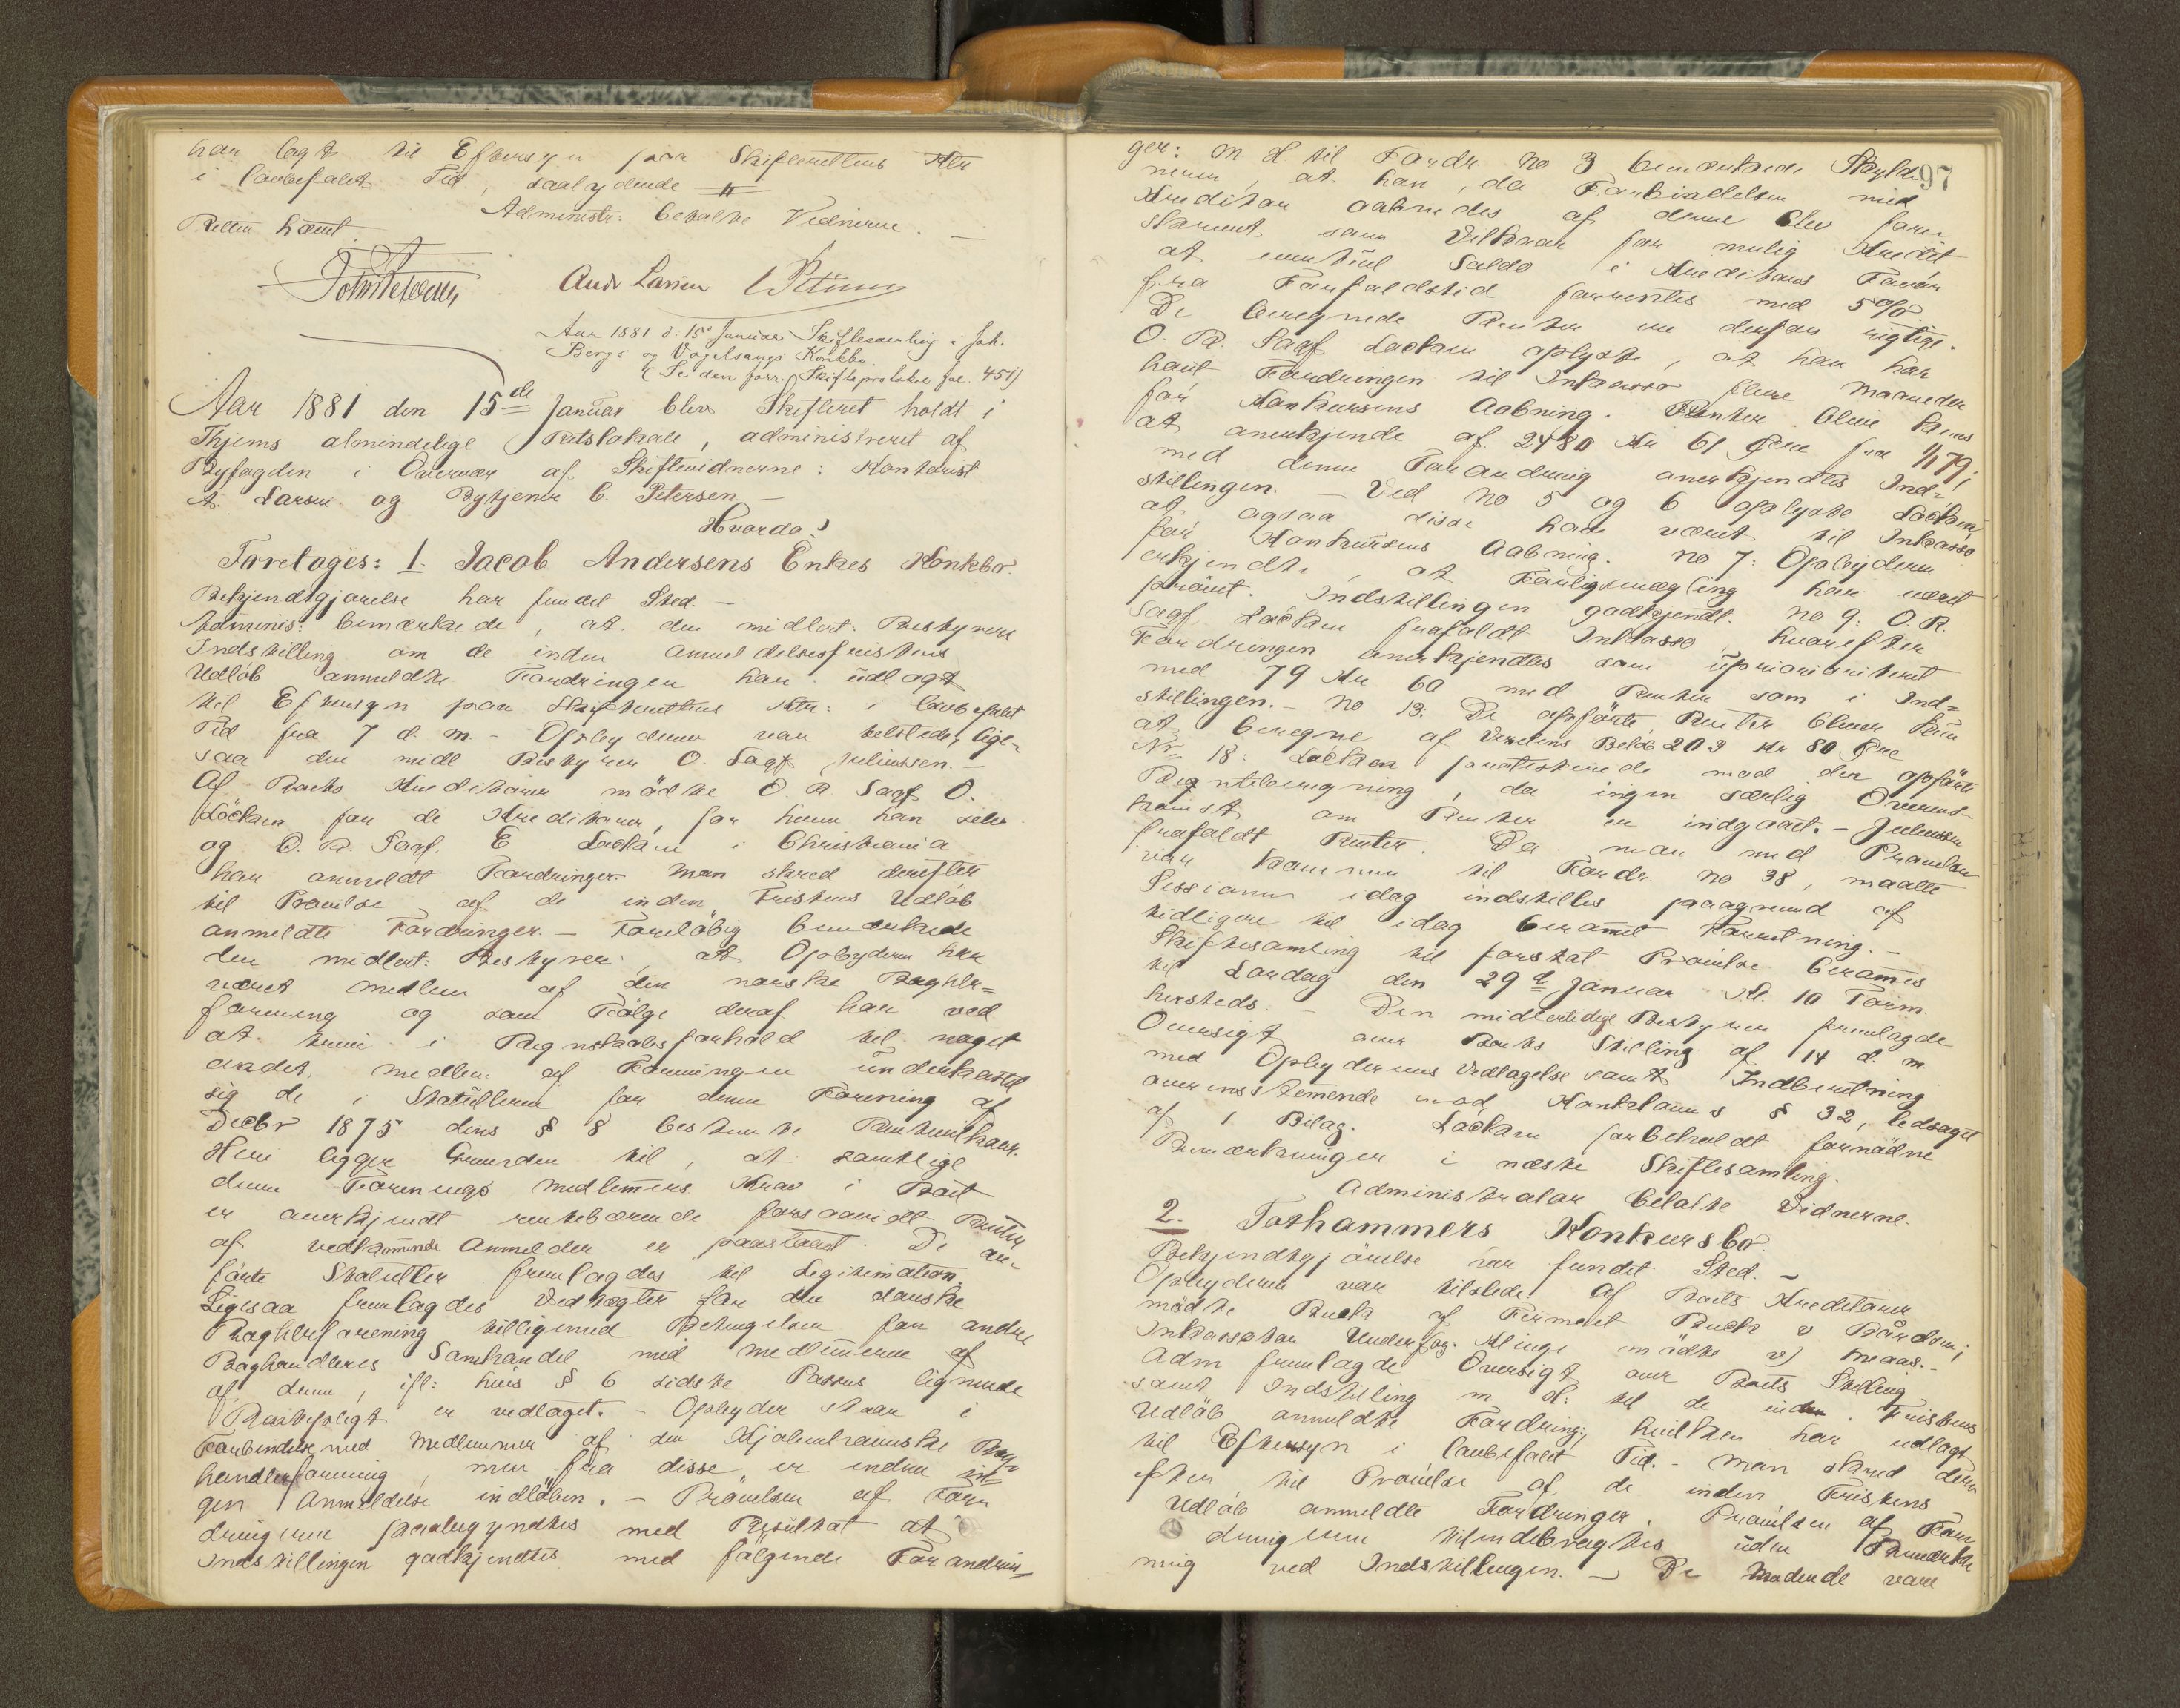 har lagt til Eftersyn paa Skifterettens Ktr
i lovbefalet Tid, saalydende #
Administr: betalte Vidnerne. —
Retten hævet.
And Larsen C Petersen
Aar 1881 d. 15de Januar Skiftesamling i Joh.
Bergs og Vogelsangs Konkbo
(Se den forr. Skifteprotokol fol. 451)
Aar 1881 den 15de Januar blev Skifteret holdt i
Thjems almindelige Retslokale, administreret af
Byfogden i Overvær af Skiftevidnerne: Kontorist
A. Larsen og Bytjener C. Petersen —
Hvorda!
Foretoges: 1. Jacob Andersens Enkes Konkbo.
Bekjendtgjørelse har fundet Sted. —
Adminis: bemærkede, at den midlert: Bestyrers
Indstilling om de inden Anmeldelsesfristens
Udløb anmeldte Fordringer har udlagt
til Eftersyn paa Skifterettens Ktr: i lovbefalet
Tid fra 7 d. m. — Opbyderen var tilstede, lige-
saa den midl Bestyrer O. Sagf Juliussen. —
Af Boets Kreditorer mødte O. R Sagf O.
Løcken for de Kreditorer, for hvem han selv
og O. R. Sagf. E Løcken i Christiania
har anmeldt Fordringer. Man skred derefter
til Prøvelse af de inden Fristens Udløb
anmeldte Fordringer. — Foreløbig bemærkede
den midlert: Bestyrer, at Opbyderen har
været Medlem af den norske Boghlr=
forening og som Følge deraf har ved
at træde i Regnskabsforhold til noget
andet Medlem af Foreningen underkastet
sig de i Statutterne for denne Forening af
Decbr 1875 dens § 8 bestemte Rentevilkaar.
Heri ligger Grunden til, at samtlige
denne Forenings Medlemmers Krav i Boet
er anerkjendt rentebærende forsaavidt Renter
af vedkommende Anmelder er paastaaet. De an-
førte Statutter fremlagdes til Legitimation.
Ligesaa fremlagdes Vedtægter for den danske
Boghlrforening tilligemed Betingelser for andre
Boghandleres Samhandel med Medlemmerne af
af denne, ifl: hvis § 6 sidste Passus lignende
Renteplegt er vedtaget. — Opbyder staar i
Forbindelse med Medlemmer af den Kjøbenhavnske Bog-
handlerforening, men fra disse er endnu in-
gen Anmeldelse indløben. — Prøvelsen af For-
dringerne paabegyndtes med Resultat at
Indstillingen godkjendtes med følgende Forandrin-
97
ger: m H til Fordr. No 3 bemærkede Skyld-
neren, at han, da Forbindelsen med
Kreditor aabnedes af denne blev fore-
skrevet som Vilkaar for mulig Kredit
at eventuel Saldo i Kreditors Favør
fra Forfaldstid forrentes med 5 %.
De beregnede Renter er derfor rigtige.
O. R. Sagf Løcken oplyste, at han har
havt Fordringen til Inkasso flere Maaneder
før Konkursens Aabning. Renter blive kuns
at anerkjende af 2480 Kr 61 Øre fra 1/1 79;
med denne Forandring anerkjendtes Ind=
stillingen. — Ved No 5 og 6 oplyste Løcken,
at ogsaa disse have været til Inkasso
før Konkursens Aabning. No 7: Opbyderen
erkjendte, at Forligsmægling har været
prøvet. Indstillingen godkjendt. No 9: O. R.
Sagf Løcken frafaldt Inkasso, hvorefter
Fordringen anerkjendtes som uprioriteret
med 79 Kr 60 med Renter som i Ind=
stillingen. — No 13: De opførte Renter bliver kun
at beregne af Varens Beløb 203 Kr 80 Øre
Nr. 18: Løcken protesterede mod den opførte
Renteberegning, da ingen særlig Overens-
komst om Renter er indgaaet. — Juliussen
frafaldt Renter. Da man med Prøvelsen
var kommen til Fordr. No 38, maatte
Sessionen idag indstilles paagrund af
tidligere til idag berammet Forretning. —
Skiftesamling til forsat Prøvelse berammes
til Lørdag den 29de Januar Kl. 10 Form.
hersteds. — Den midlertidige Bestyrer fremlagde
Oversigt over Boets Stilling af 14 d. m.
med Opbyderens Vedtagelse samt Indberetning
overensstemmende med Konkslovens § 32, ledsaget
af 1 Bilag. Løcken forbeholdt fornødne
Bemærkninger i næste Skiftesamling.
Administrator betalte Vidnerne.
2. Forhammers Konkursbo.
Bekjendtgjørelse har fundet Sted. —
Opbyderen var tilstede. Af Boets Kreditorer
mødte Buck af Firmaet Buck &
Inkassator Underfog. Klinge mødte
Adm fremlagde Oversigt over Boets Stilling
samt Indstilling m H: til de inden Fristens
Udløb anmeldte Fordring:, hvilken har udlagt
til Eftersyn i lovbefalet Tid. — Man skred der-
efter til Prøvelse af de inden Fristens
Udløb anmeldte Fordringer. Prøvelsen af For-
dringerne tilendebragtes uden Bemærk-
ning ved Indstillingen. — De Mødende vare